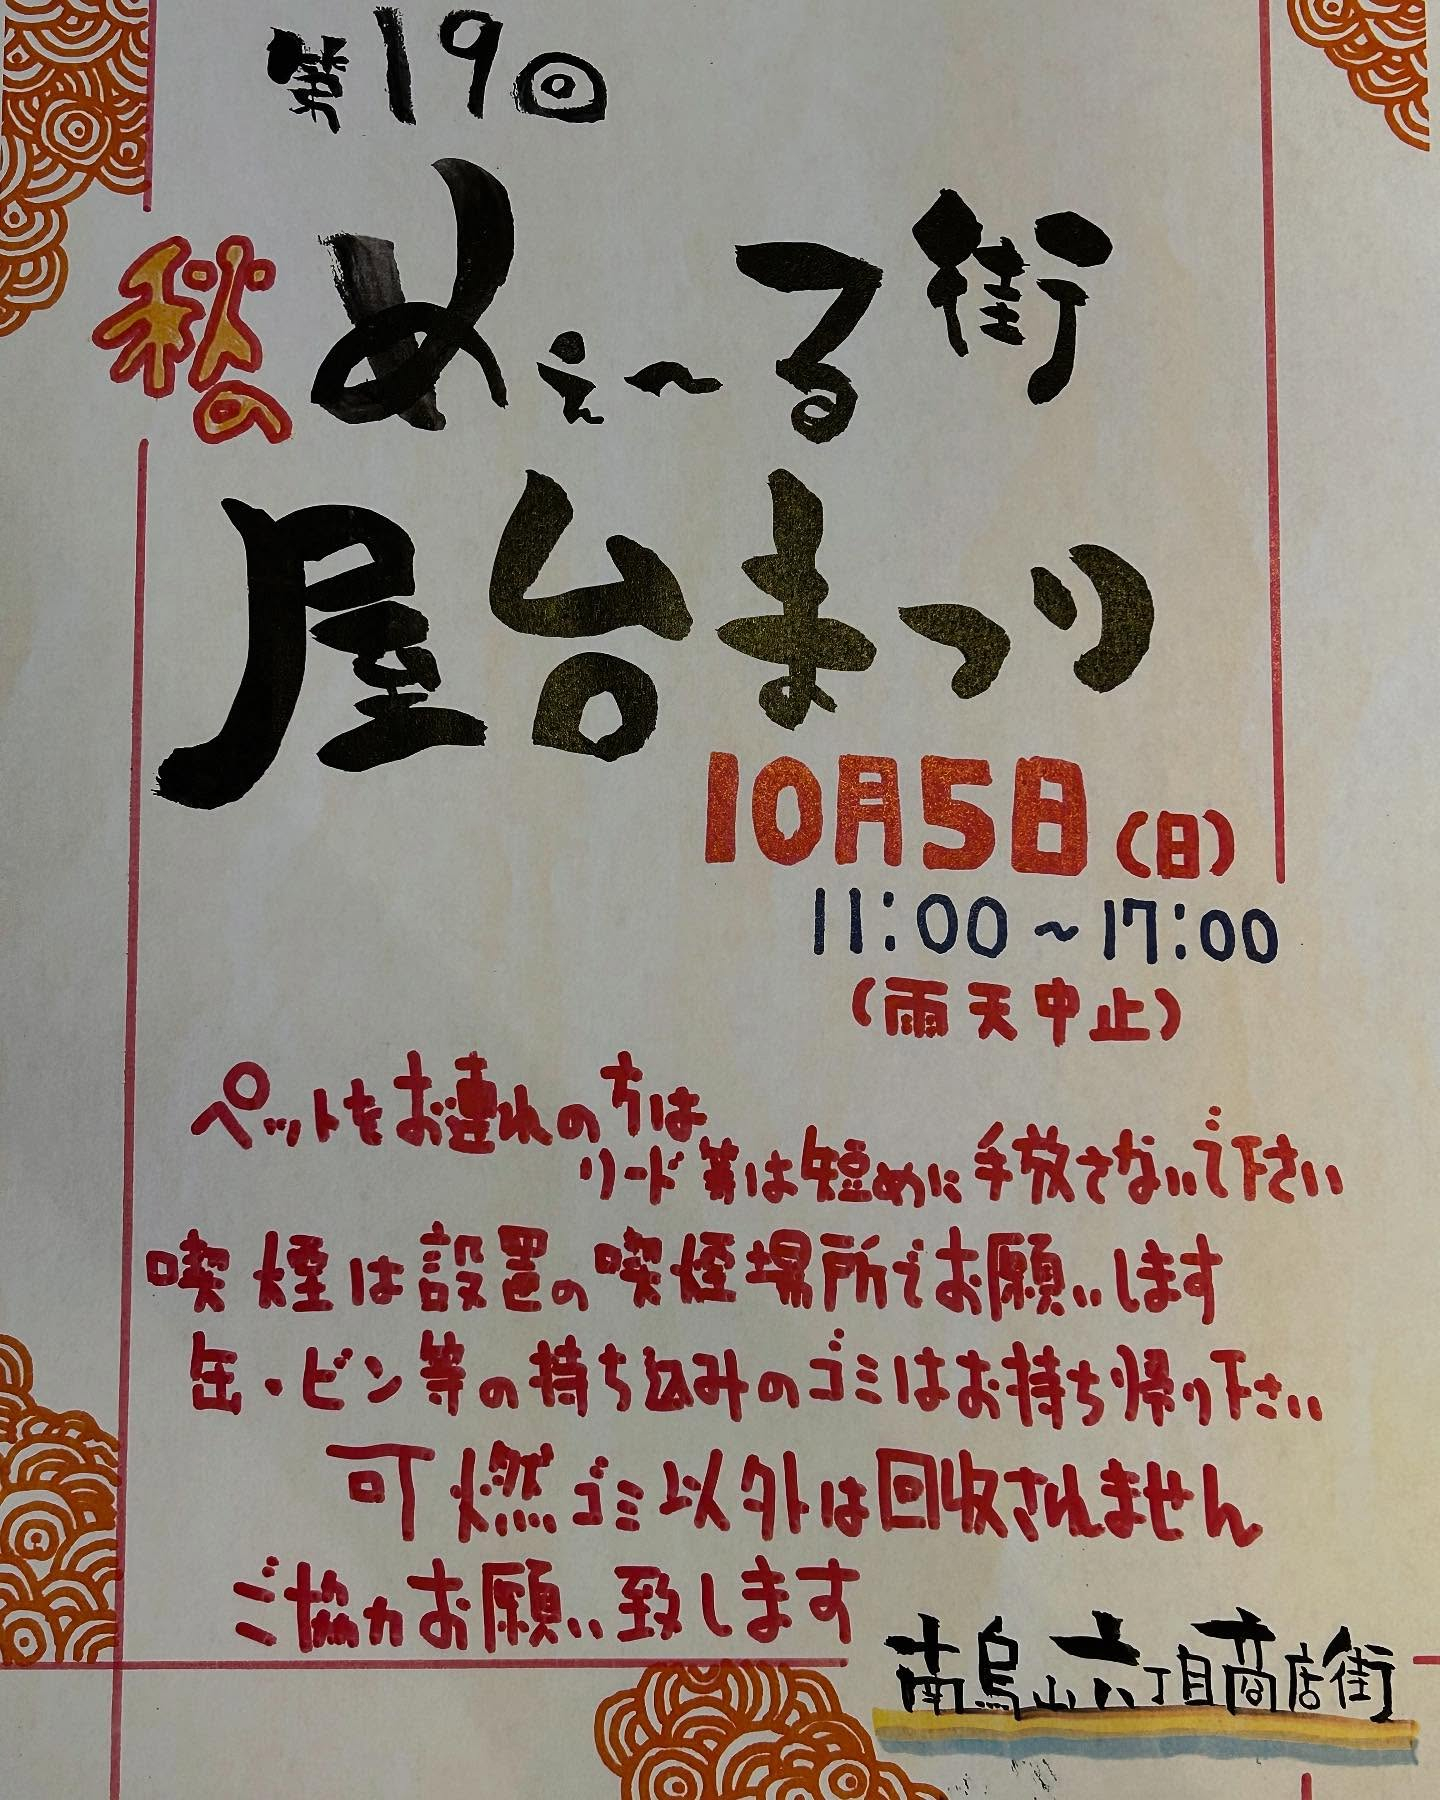 第19回
秋の めぇ〜る街
屋台まつり
10月5日(日)
11:00〜17:00
(雨天中止)
ペットをお連れの方は
リード等は短めに手放さないで下さい
喫煙は設置の喫煙場所でお願いします
缶・ビン等の持ち込みのゴミはお持ち帰り下さい
可燃ゴミ以外は回収されません
ご協力お願い致します
南烏山六丁目商店街